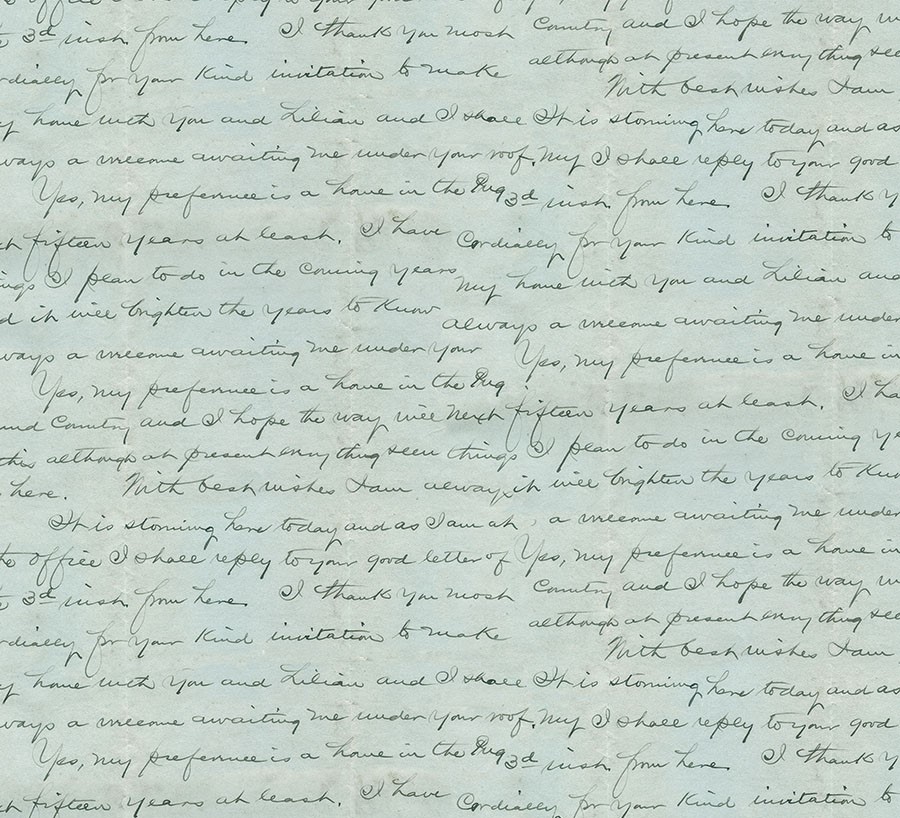 3d inst. from here. I thank you most Country and I hope the way
rdially for your kind invitation to make although at present every thing see
With best wishes I am
y home with you and Lilian and I shall It is storming here today and as
ways a welcome awaiting me under your roof. My I shall reply to your good
Yes, my preference is a home in the Pug 3d inst. from here. I thank y
fifteen years at least. I have Cordially for your kind invitation to
ings I plan to do in the coming years my home with you and Lilian and
d it will brighten the years to know always a welcome awaiting me under
ways a welcome awaiting me under your Yes, my preference is a home in
Yes, my preference is a home in the Pug
und Country and I hope the way will next fifteen years at least. I ha
this although at present every thing seem things I plan to do in the coming ye
here. With best wishes I am always it will brighten the years to know
It is storming here today and as I am at , a welcome awaiting me under
the office I shall reply to your good letter of Yes, my preference is a home in
3d inst. from here. I thank you most Country and I hope the way
rdially for your kind invitation to make although at present every thing see
With best wishes I am
y home with you and Lilian and I shall It is storming here today and as
ways a welcome awaiting me under your roof. My I shall reply to your good
Yes, my preference is a home in the Pug 3d inst. from here. I thank y
fifteen years at least. I have Cordially for your kind invitation to